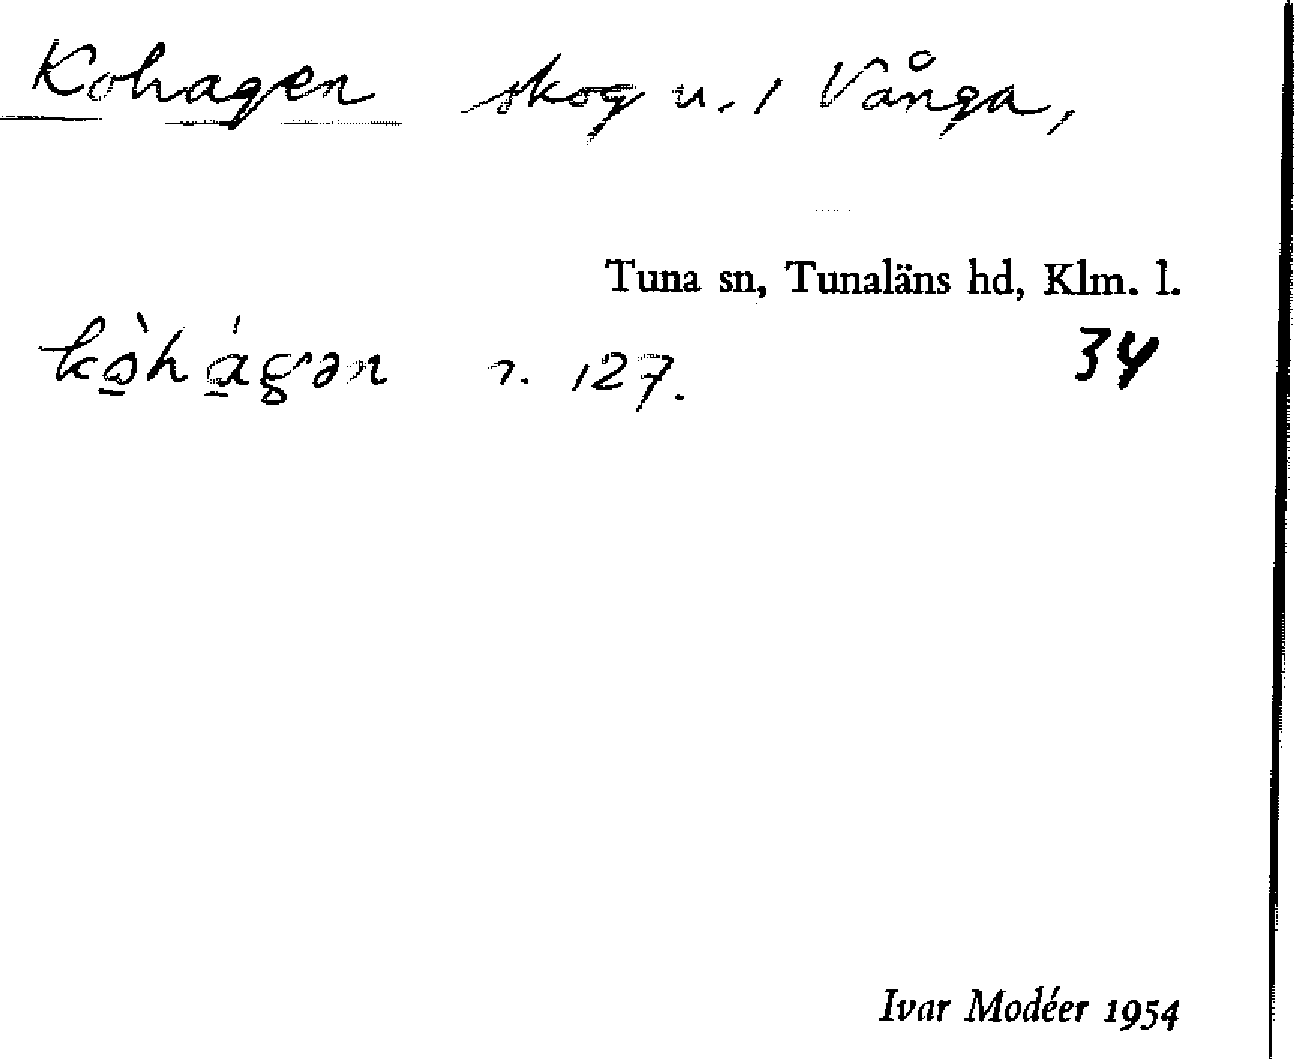 Kohagen skog u. 1 Vånga,
Tuna sn, Tunaläns hd, Klm. l.
34
kò̱há̱gən r. 127.
Ivar Modéer 1954